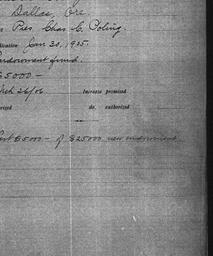 Dallas, Ore.
Pres. Chas C. Poling
lication Jan 30, 1905.
Endowment fund.
25000 —
Feb 26/06 Increase promised
orized do. authorized
of $25000 new endowment